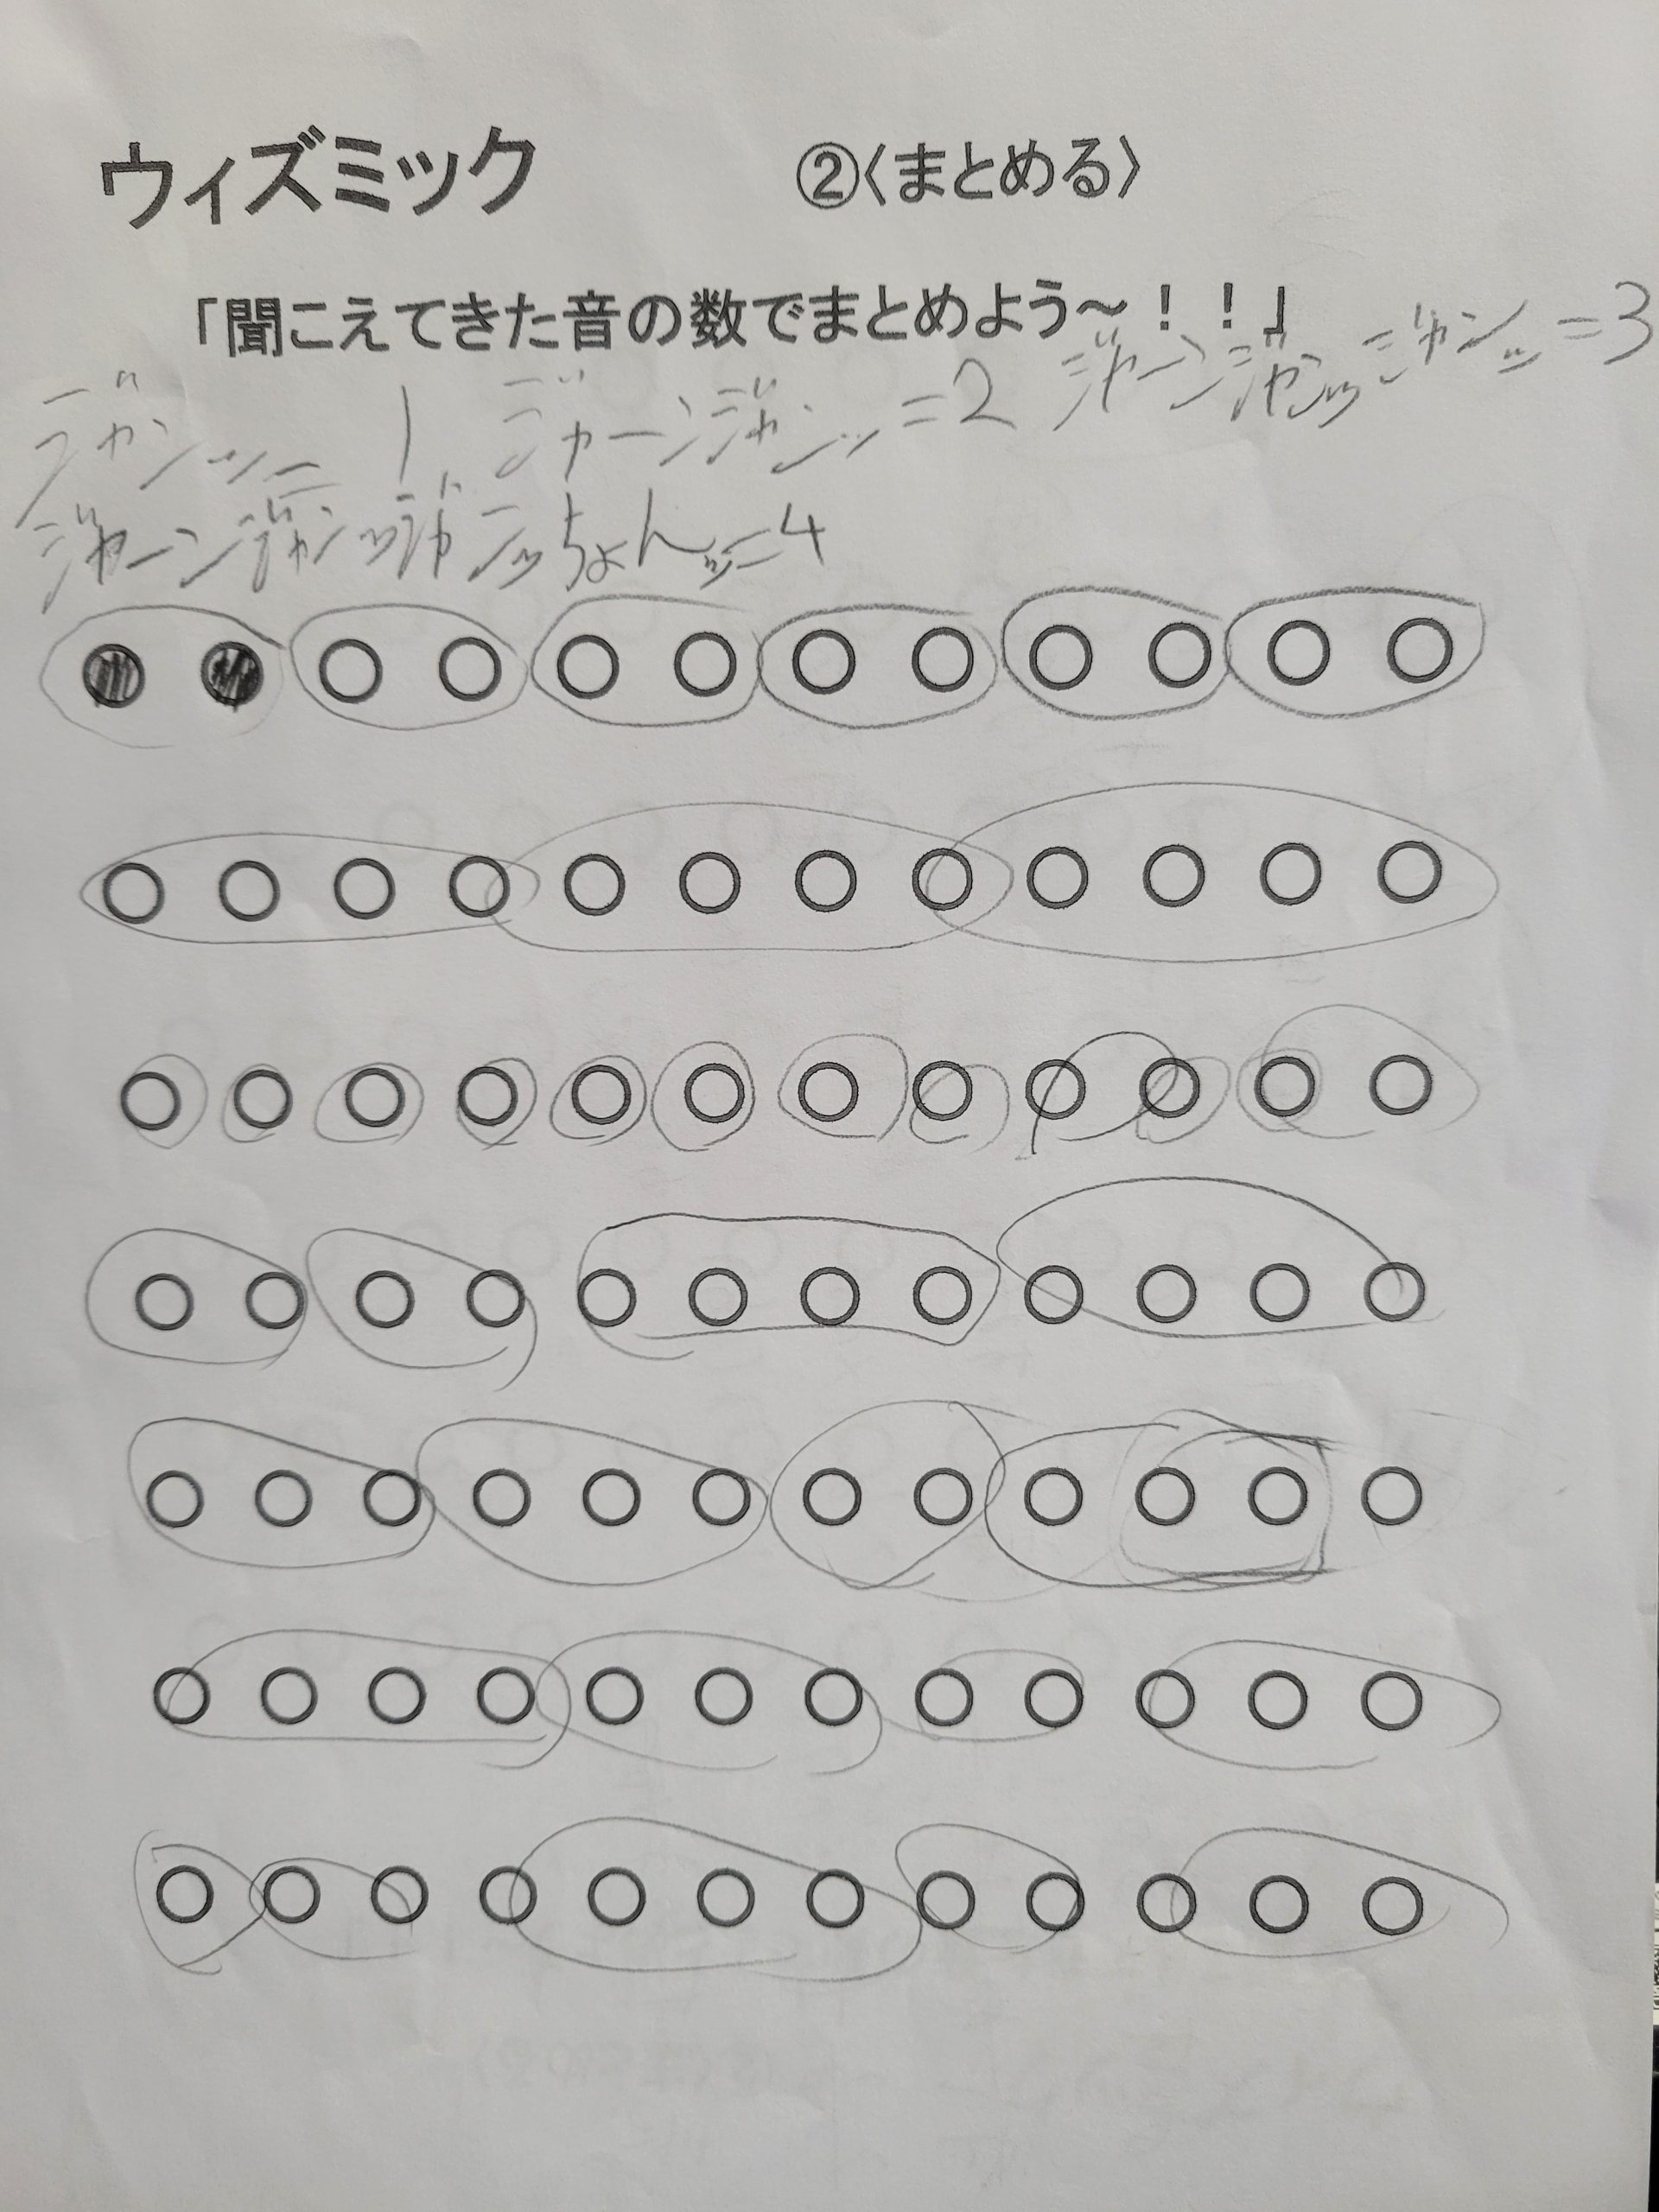 ウィズミック ②〈まとめる〉
「聞こえてきた音の数でまとめよう～！！」
ジャンッ= 1 ジャーンジャンッ=2 ジャーンジャンッジャンッ=3
ジャーンジャンッジャンッちょんッ=4